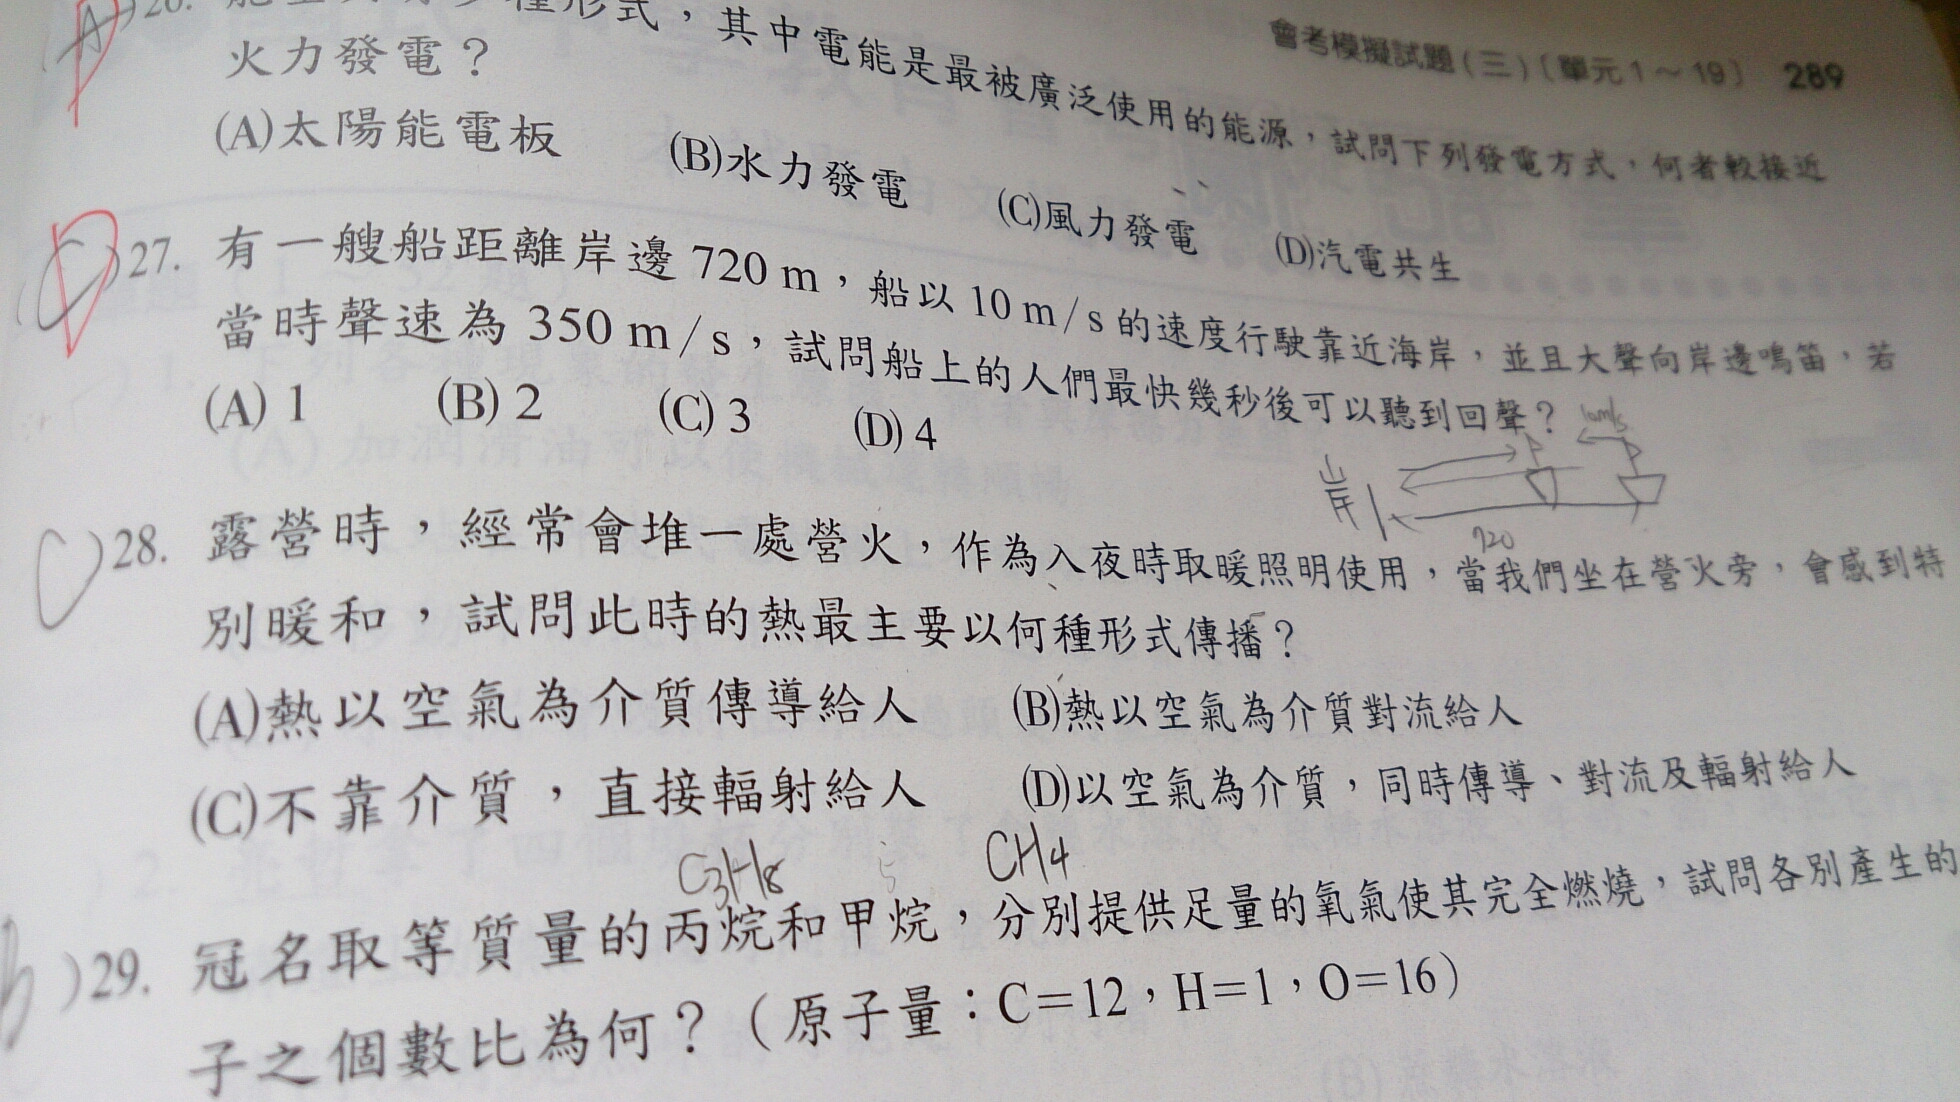 會考模擬試題(三)(單元1~19) 289
形式,其中電能是最被廣泛使用的能源,試問下列發電方式,何者較接近
火力發電?
(A)太陽能電板 (B)水力發電 (C)風力發電 (D)汽電共生
(C)27. 有一艘船距離岸邊720 m,船以10 m/s的速度行駛靠近海岸,並且大聲向岸邊鳴笛,若
當時聲速為350 m/s,試問船上的人們最快幾秒後可以聽到回聲?
(A) 1 (B) 2 (C) 3 (D) 4
10m/s
岸
720
C)28. 露營時,經常會堆一處營火,作為入夜時取暖照明使用,當我們坐在營火旁,會感到特
別暖和,試問此時的熱最主要以何種形式傳播?
(A)熱以空氣為介質傳導給人 (B)熱以空氣為介質對流給人
(C)不靠介質,直接輻射給人 (D)以空氣為介質,同時傳導、對流及輻射給人
C3H8 CH4
)29. 冠名取等質量的丙烷和甲烷,分別提供足量的氧氣使其完全燃燒,試問各別產生的
子之個數比為何?(原子量:C=12,H=1,O=16)